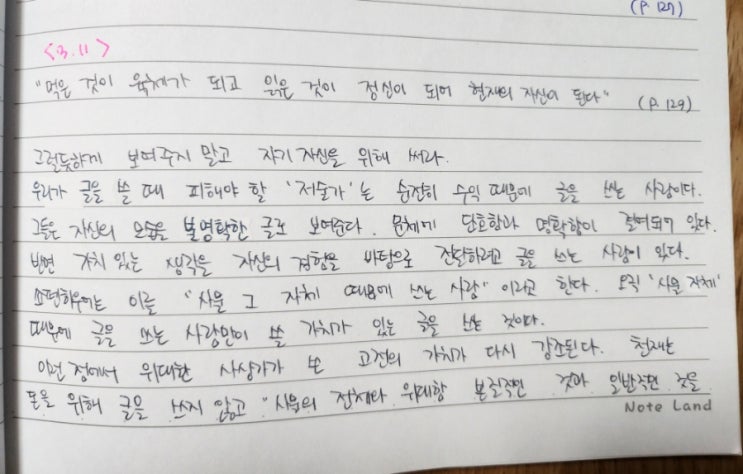 (P. 127)
<3.11>
"먹은 것이 육체가 되고 읽은 것이 정신이 되어 현재의 자신이 된다" (P. 129)
그럴듯하게 보여주지 말고 자기 자신을 위해 써라.
우리가 글을 쓸 때 피해야 할 '저술가'는 순전히 수익 때문에 글을 쓰는 사람이다.
그들은 자신의 모습을 불명확한 글로 보여준다. 문체에 단호함과 명확함이 결여되어 있다.
반면 가치 있는 생각을 자신의 경험을 바탕으로 전달하려고 글을 쓰는 사람이 있다.
쇼펜하우어는 이를 "사물 그 자체 때문에 쓰는 사람" 이라고 한다. 오직 '사물 자체'
때문에 글을 쓰는 사람만이 쓸 가치가 있는 글을 쓰는 것이다.
이런 점에서 위대한 사상가가 쓴 고전의 가치가 다시 강조된다. 천재는
돈을 위해 글을 쓰지 않고 "사물의 전체와 위대함 본질적인 것과 일반적인 것을
Note Land